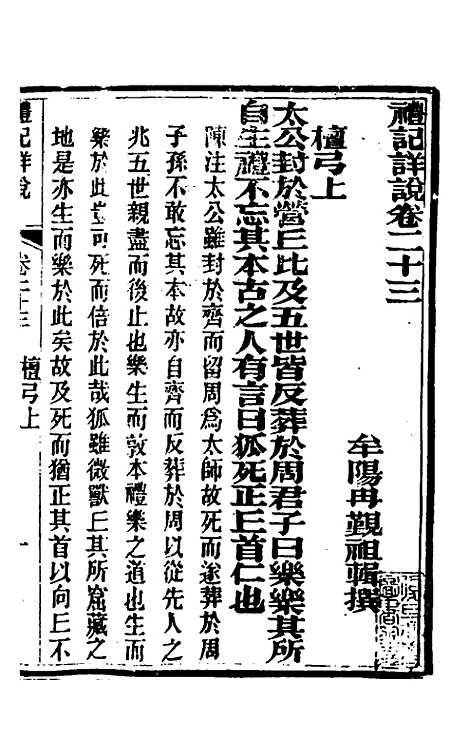 禮記詳說卷二十三
牟陽冉覲祖輯撰
檀弓上
太公封於營丘比及五世皆反葬於周君子曰樂樂其所
自生禮不忘其本古之人有言曰狐死正丘首仁也
陳注太公雖封於齊而留周爲太師故死而遂葬於周
子孫不敢忘其本故亦自齊而反葬於周以從先人之
兆五世親盡而後止也樂生而敦本禮樂之道也生而
樂於此豈可死而倍於此哉狐雖微獸丘其所窟藏之
地是亦生而樂於此矣故及死而猶正其首以向丘不
禮記詳說
卷二十三
檀弓上
一